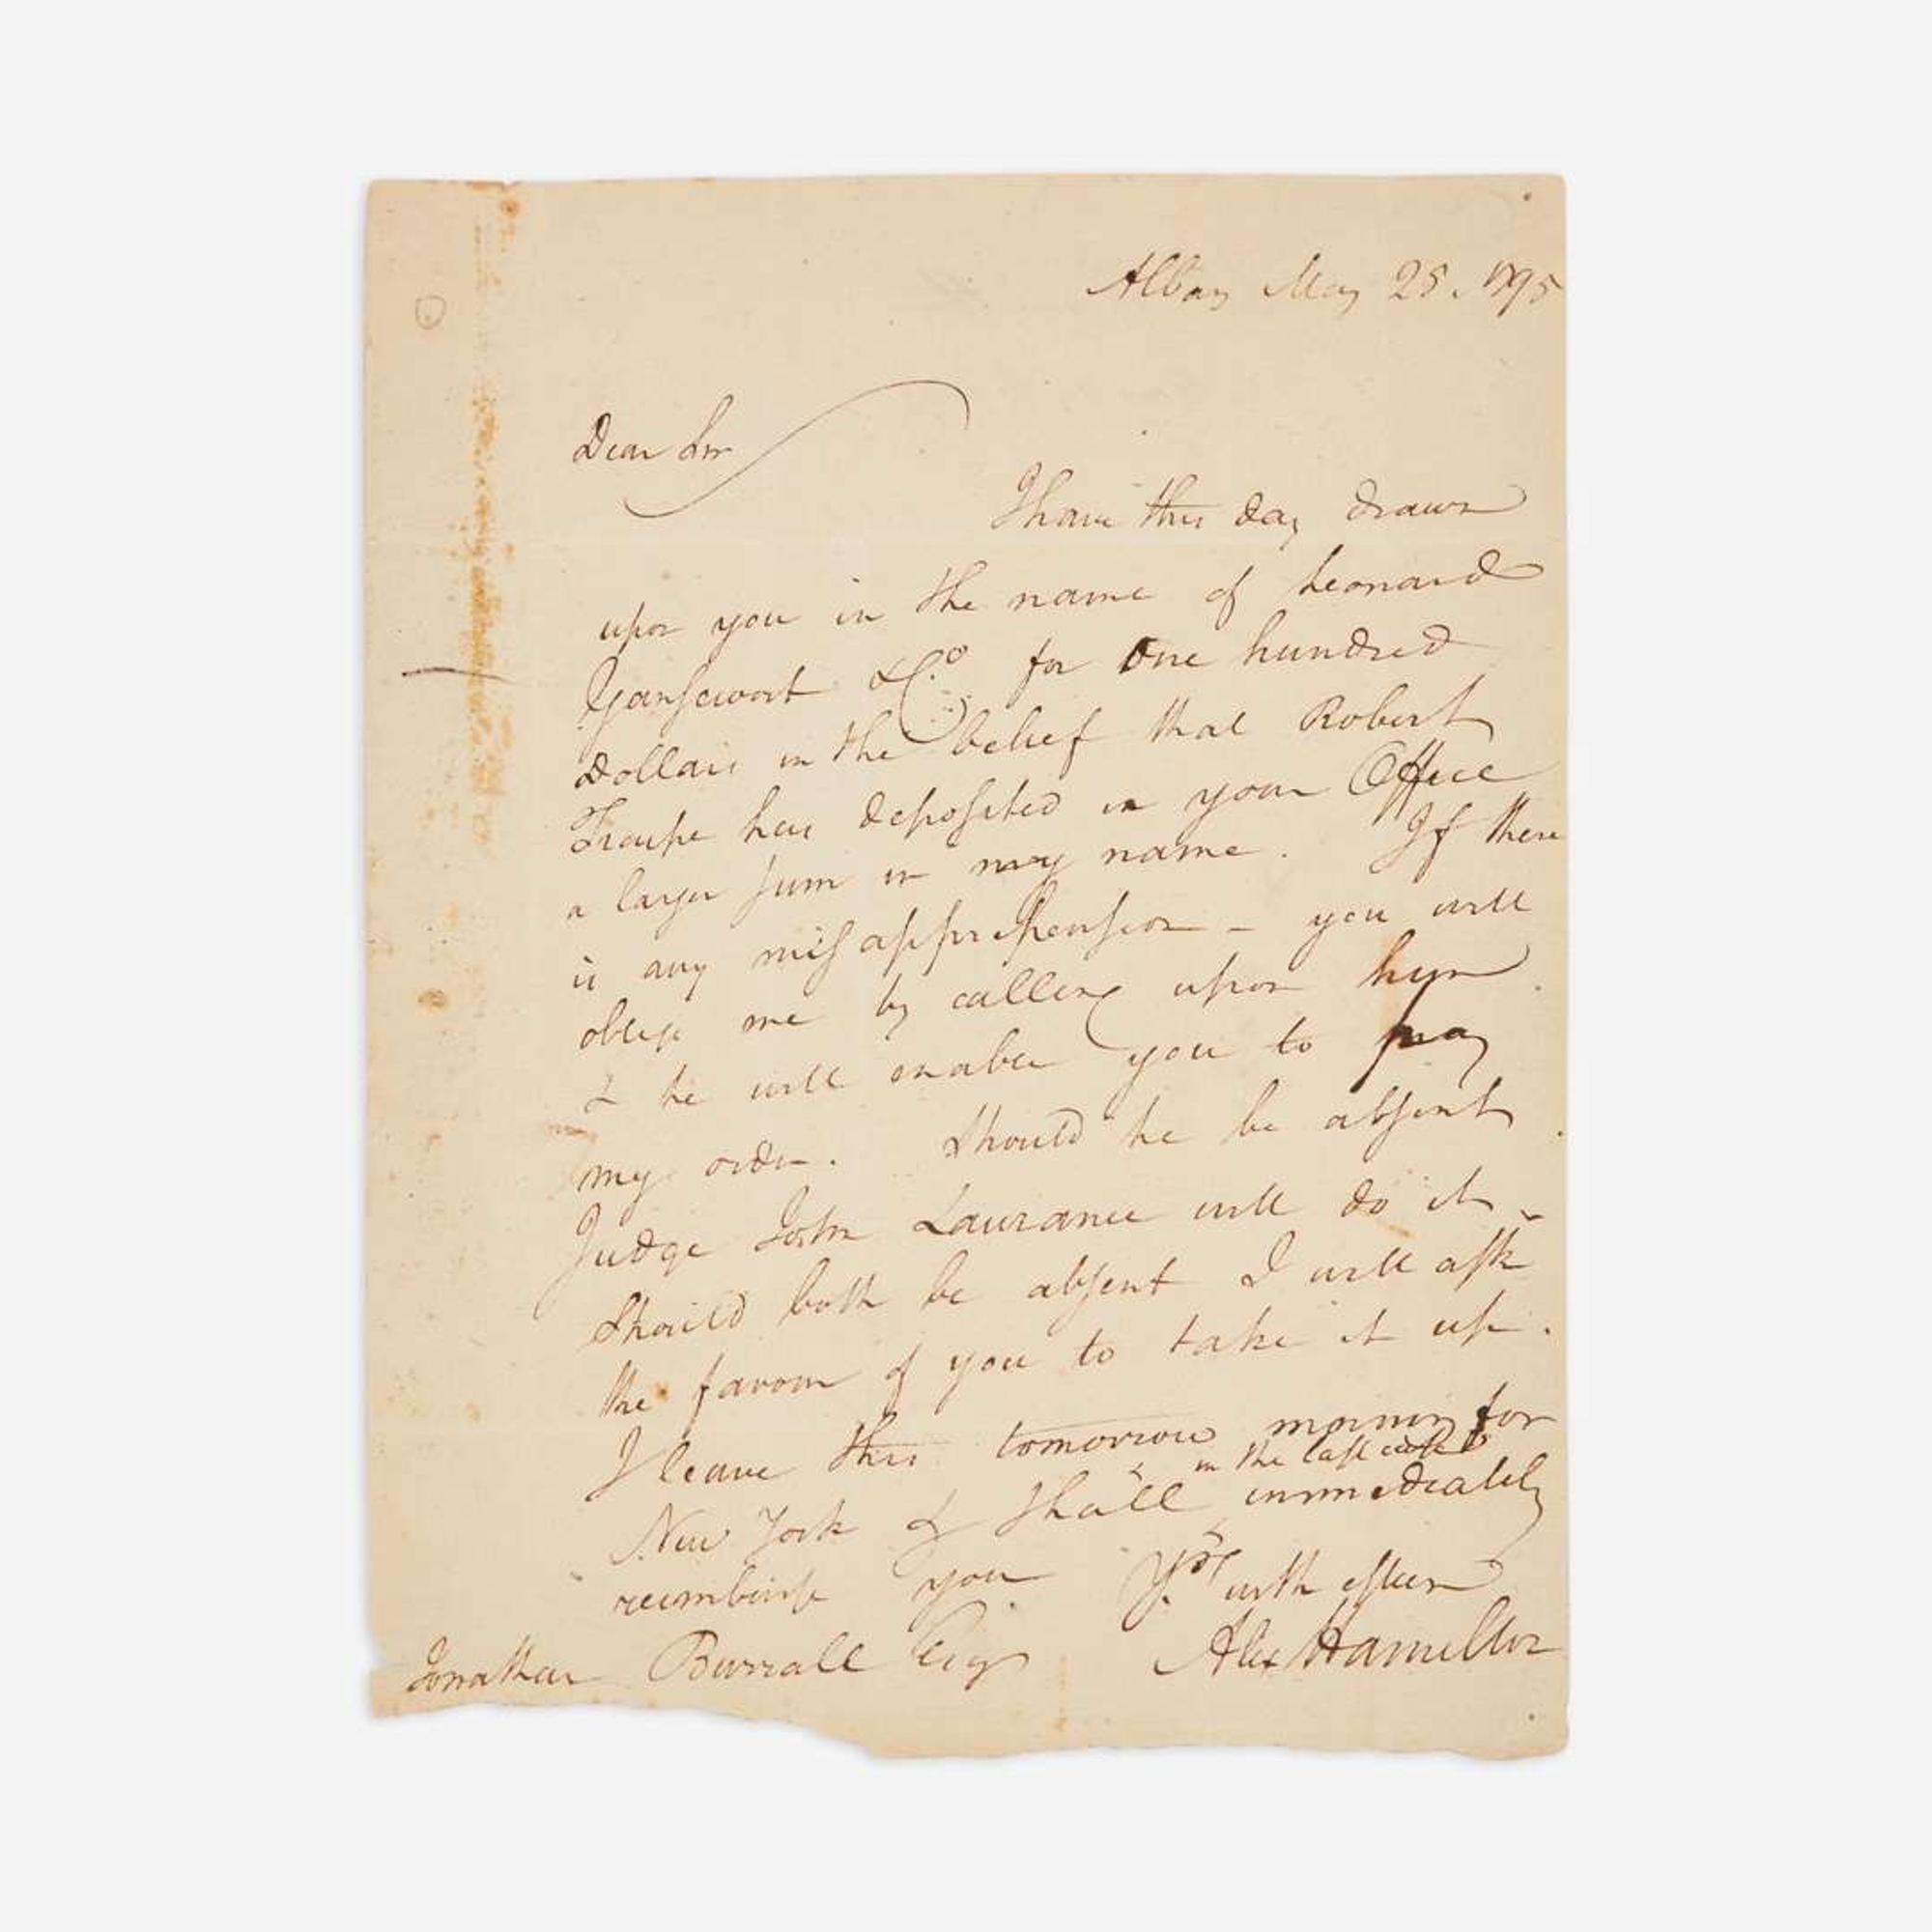 Albany May 28. 1795
Dear Sir
I have this day drawn
upon you in the name of Leonard
Gansevort & Co. for One hundred
Dollars in the belief that Robert
Troupe has deposited in your Office
a larger sum in my name. If there
is any misapprehension – you will
oblige me by calling upon him
& he will enable you to pay
my order. Should he be absent
Judge John Laurance will do it –
Should both be absent I will ask
the favour of you to take it up.
I leave this tomorrow morning for
in the last case
New York & shall immediately
reimburse you Yrs. with esteem
Jonathan Burrall Esq Alex Hamilton